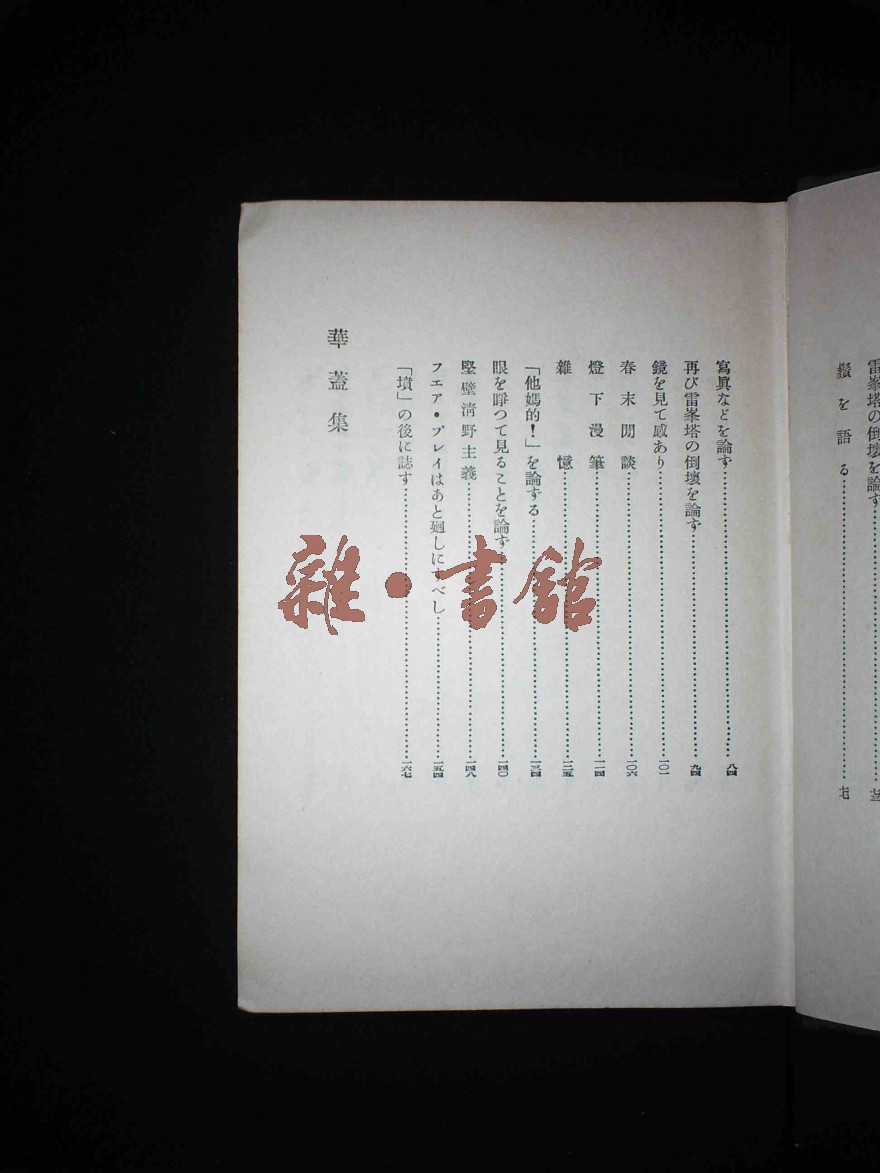 雷峯塔の倒壞を論ず
鬚を語る 七七
寫眞などを論ず 八四
再び雷峯塔の倒壞を論ず 九四
鏡を見て感あり 一〇一
春末閒談 一〇六
燈下漫筆 一一四
雜憶 一二五
「他媽的!」を論ずる 一三四
眼を睜つて見ることを論ず 一四〇
堅壁淸野主義 一四八
フエア・プレイはあと廻しにすべし 一五四
「墳」の後に誌す 一六七
華蓋集
雜·書館